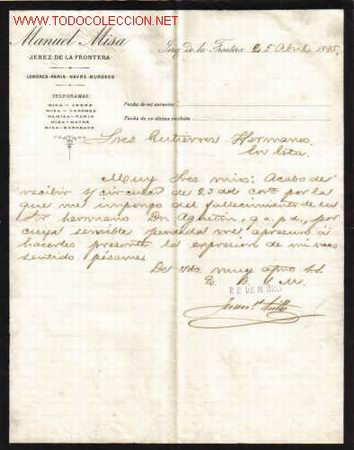 TODOCOLECCION.NET
Manuel Misa
JEREZ DE LA FRONTERA
LONDRES-PARIS-HAVRE-BURDEOS
TELEGRAMAS:
MISA - JEREZ
MISA - LONDRES
MISA - PARIS
MISA - HAVRE
MISA - BURDEOS
Jerez de la Frontera 25 Abril
Fecha de mi anterior
Fecha de su última recibida
Sres Gutierrez Hermanos
En esta.
Muy Sres mios: Acabo de
recibir circular de 23 del corte por la
que me impongo del fallecimiento de su
Sor hermano Don Agustin, q.e.p.d., por
cuya sensible perdida me apresuro á
hacerles presente la expresion de mi mas
sentido pésame.
De Vds. muy afmo S.S.
Q. B. S. M.
P.P. DE M. MISA